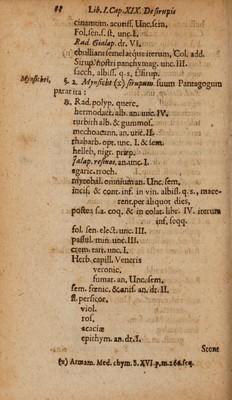 88 Lib. I. Cap. XIX. De sirupis
cinamom. acutiss. Unc. sem.
Fol. sen. s. st. unc. I.
Rad. Gialap. dr. VI.
ebulliant semel acquis iterum, Col. add.
Sirup. nostri panchymag. unc. III.
sacch. albiss. q. s. f. sirup.
Mynsichti.
§. 2. Mynsicht (x) sirupum suum Pantagogum
parat ita:
℞. Rad. polyp. querc.
hermodact. alb. an. unc. IV.
turbith alb. & gummos.
mechoacann. an. unc. II.
rhabarb. opt. unc. I. & sem.
helleb. nigr. præp.
Jalap. resinos. an. unc. I.
agaric. troch.
myrobal. omnium an. Unc. sem.
incis. & cont. inf. in vin. albiss. q. s., mace-
rent. per aliquot dies,
postea f. a. coq. & in colat. libr. IV. iterum
inf. seqq.
fol. sen. elect. unc. III.
passul. min. unc. III.
crem. tart. unc. I.
Herb. capill. Veneris
veronic.
fumar. an. Unc. sem.
sem. fœnic. & anis. an. dr. II.
fl. persicor.
viol.
ros.
acaciæ
epithym. an. dr. I.
(x) Armam. Med. chym. S. XVI. p. m.